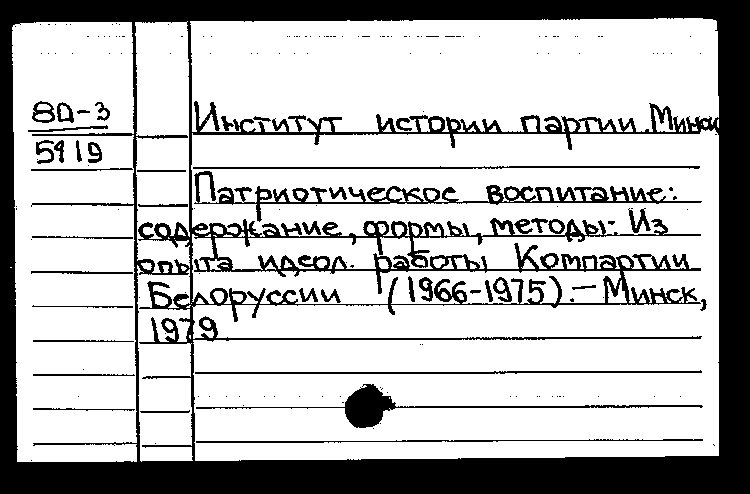 80-3
5919
Институт истории партии. Минск
Патриотическое воспитание:
содержание, формы, методы: Из
опыта идеол. работы Компартии
Белоруссии (1966-1975).— Минск,
1979.